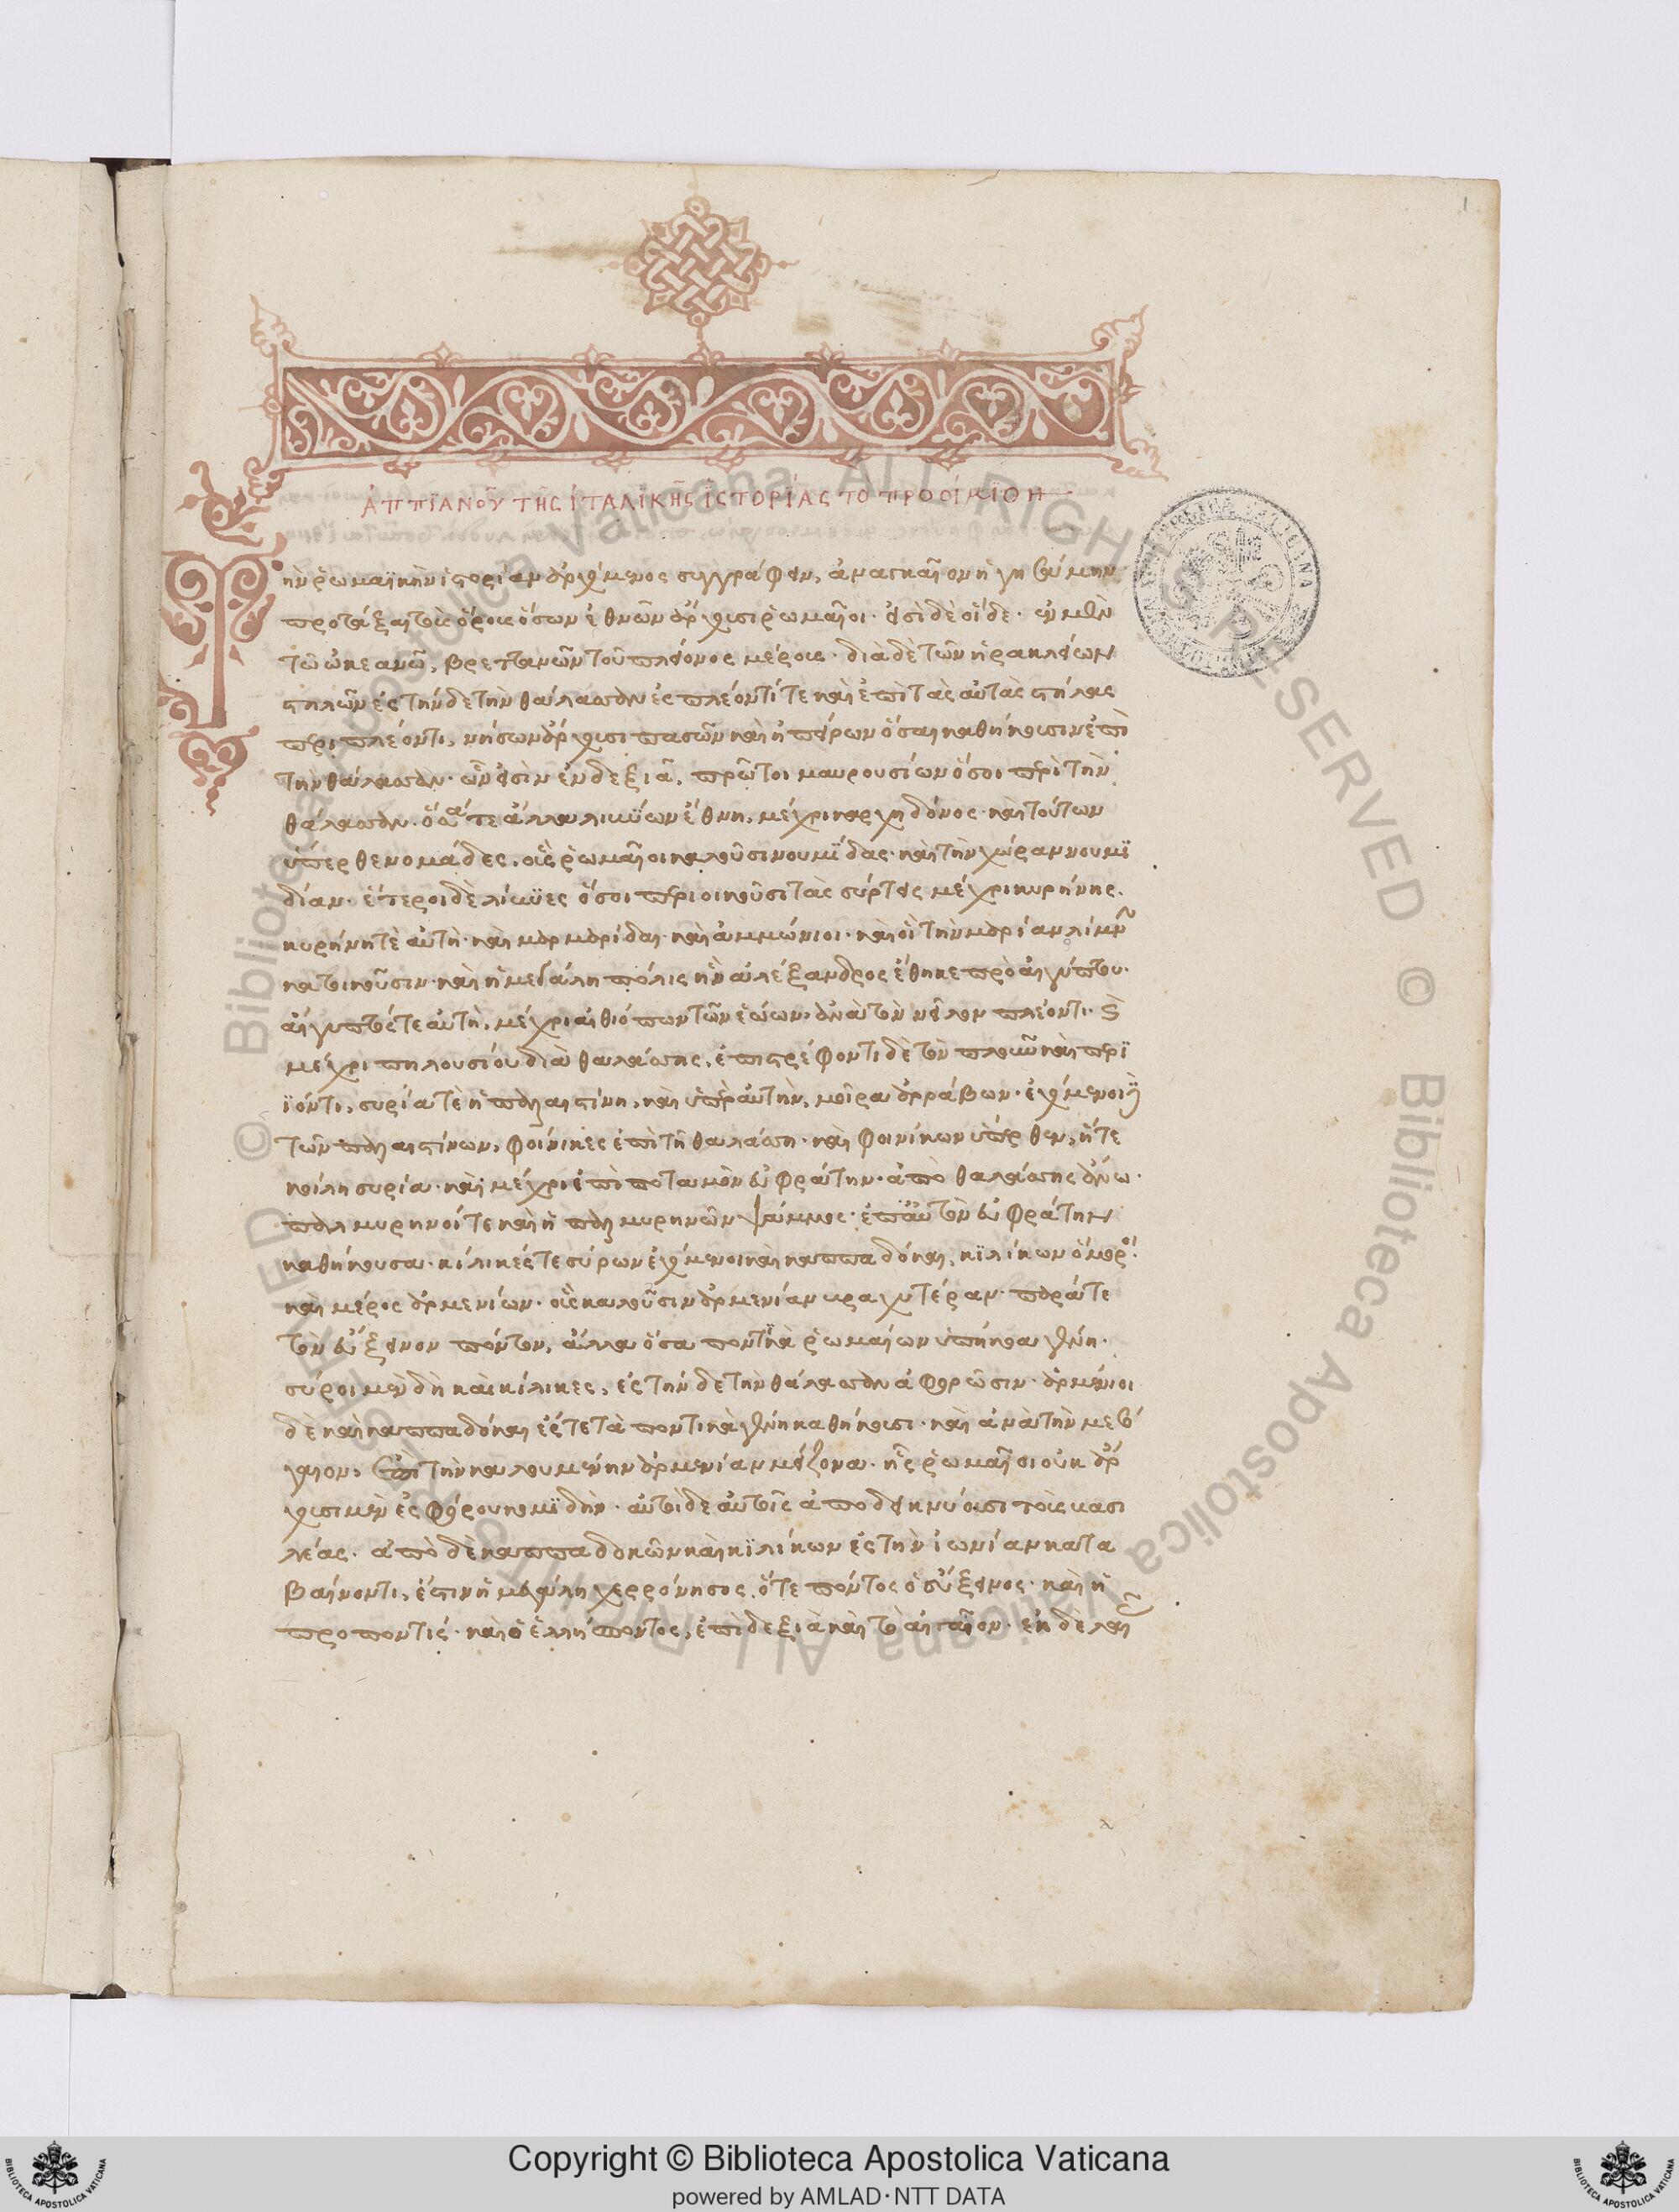 1
ἈΠΠΪΑΝΟῦ ΤΗΣ ἸΤΑΛΪΚΗ͂Σ ἹΣΤΟΡΊΑΣ ΤΟ ΠΡΟΟΊΜΪΟΗ
Τ
ὴν ῥωμαϊκὴν ἱστορίαν ἀρχόμενος συγγράφειν, ἀναγκαῖον ἡγησάμην
προτάξαι τοὺς ὅρους ὅσων ἐθνῶν ἄρχουσι ῥωμαῖοι· εἰσὶ δὲ οἵδε· ἐν μὲν
τῶ ὠκεανῶ, βρεττανῶν τοῦ πλείονος μέρους· διὰ δὲ τῶν ἡρακλείων
στηλῶν ἐς τήνδε τὴν θάλασσαν ἐσπλέοντί τε καὶ ἐπὶ τὰς αὐτὰς στήλας
περιπλέοντι, νήσων ἄρχουσι πασῶν καὶ ἠπείρων ὅσαι καθήκουσιν ἐπὶ
τὴν θάλασσαν· ὧν εἰσὶν ἐν δεξιᾶ, πρῶτοι μαυρουσίων ὅσοι περὶ τὴν
θάλασσαν· ὅσα τε ἄλλα λιβύων ἔθνη, μέχρι καρχηδόνος· καὶ τούτων
ὕπερθε νομάδες, οὓς ῥωμαῖοι καλοῦσι νουμίδας· καὶ τὴν χώραν νουμϊ
δίαν· ἕτεροι δὲ λίβυες ὅσοι περιοικοῦσι τὰς σύρτεις μέχρι κυρήνης.
κυρήνη τὲ αὐτὴ· καὶ μαρμαρίδαι· καὶ ἀμμώνιοι· καὶ οἳ τὴν μαρίαν λίμνην
κατοικοῦσιν· καὶ ἡ μεγάλη πόλις ἣν ἀλέξανδρος ἔθηκε πρὸ αἰγύπτου·
αἴγυπτός τε αὐτὴ, μέχρι αἰθιόπων τῶν ἑώων, ἀνὰ τὸν νεῖλον πλέοντι· καὶ
μέχρι πηλουσίου διὰ θαλάσσης, ἐπιστρέφοντι δὲ τὸν πλοῦν καὶ περϊ
ϊόντι, συρία τὲ ἡ παλαιστίνη, καὶ ὑπὲρ αὐτὴν, μοῖρα ἀρράβων· ἐχόμενοι δὲ
τῶν παλαιστίνων, φοίνικες ἐπὶ τῆ θαλάσση· καὶ φοινίκων ὕπερθεν, ἥτε
κοίλη συρία· καὶ μέχρι ἐπὶ ποταμὸν εὐφράτην· ἀπὸ θαλάσσης ἄνω·
παλμυρηνοί τε καὶ ἡ παλμυρηνῶν ψάμμος· ἐπ᾽ αὐτὸν εὐφράτην
καθήκουσα· κίλικές τε σύρων ἐχόμενοι καὶ καππαδόκαι, κιλίκων ὅμοροι·
καὶ μέρος ἀρμενίων· οὓς καλοῦσιν ἀρμενίαν βραχυτέραν· παρά τε
τὸν εὔξεινον πόντον, ἄλλα ὅσα ποντικὰ ῥωμαίων ὑπήκοα γένη·
σύροι μὲν δὴ καὶ κίλικες, ἐς τήνδε τὴν θάλασσαν ἀφορῶσιν· ἀρμένιοι
δὲ καὶ καππαδόκαι ἔς τε τὰ ποντικὰ γένη καθήκουσι· καὶ ἀνὰ τὴν μεσό
γαιον, ἐπὶ τὴν καλουμένην ἀρμενίαν μείζονα· ἧς ῥωμαῖοι οὐκ ἄρ
χουσι μὲν ἐς φόρου κομϊδὴν· αὐτοὶ δὲ αὐτοῖς ἀποδεικνύουσι τοὺς βασι
λέας· ἀπὸ δὲ καππαδοκῶν καὶ κϊλίκων ἐς τὴν ἰωνίαν κατα
βαίνοντι, ἔστιν ἡ μεγάλη χερρόνησος, ὅ τε πόντος ὁ εὔξεινος· καὶ ἡ
προποντίς· καὶ ὁ ἑλλήσποντος, ἐπὶ δεξιὰ καὶ τὸ αἰγαῖον· ἐκ δὲ λαιᾶς
Copyright © Biblioteca Apostolica Vaticana ALL RIGHTS RESERVED
BIBLIOTECA APOSTOLICA VATICANA
Copyright © Biblioteca Apostolica Vaticana
powered by AMLAD·NTT DATA
BIBLIOTECA APOSTOLICA VATICANA